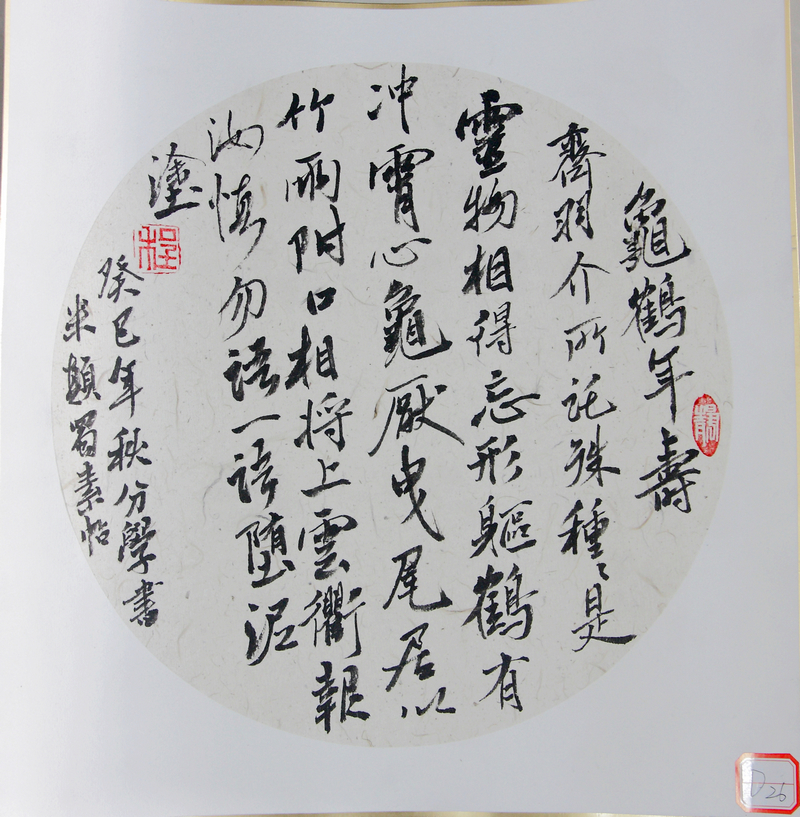 龜鶴年壽
齊羽介所託殊種〻是
靈物相得忘形軀鶴有
冲霄心龜厭曳尾居以
竹兩附口相將上雲衢報
汝慎勿語一語堕泥
塗
癸巳年秋分學書
米顛蜀素帖
D26